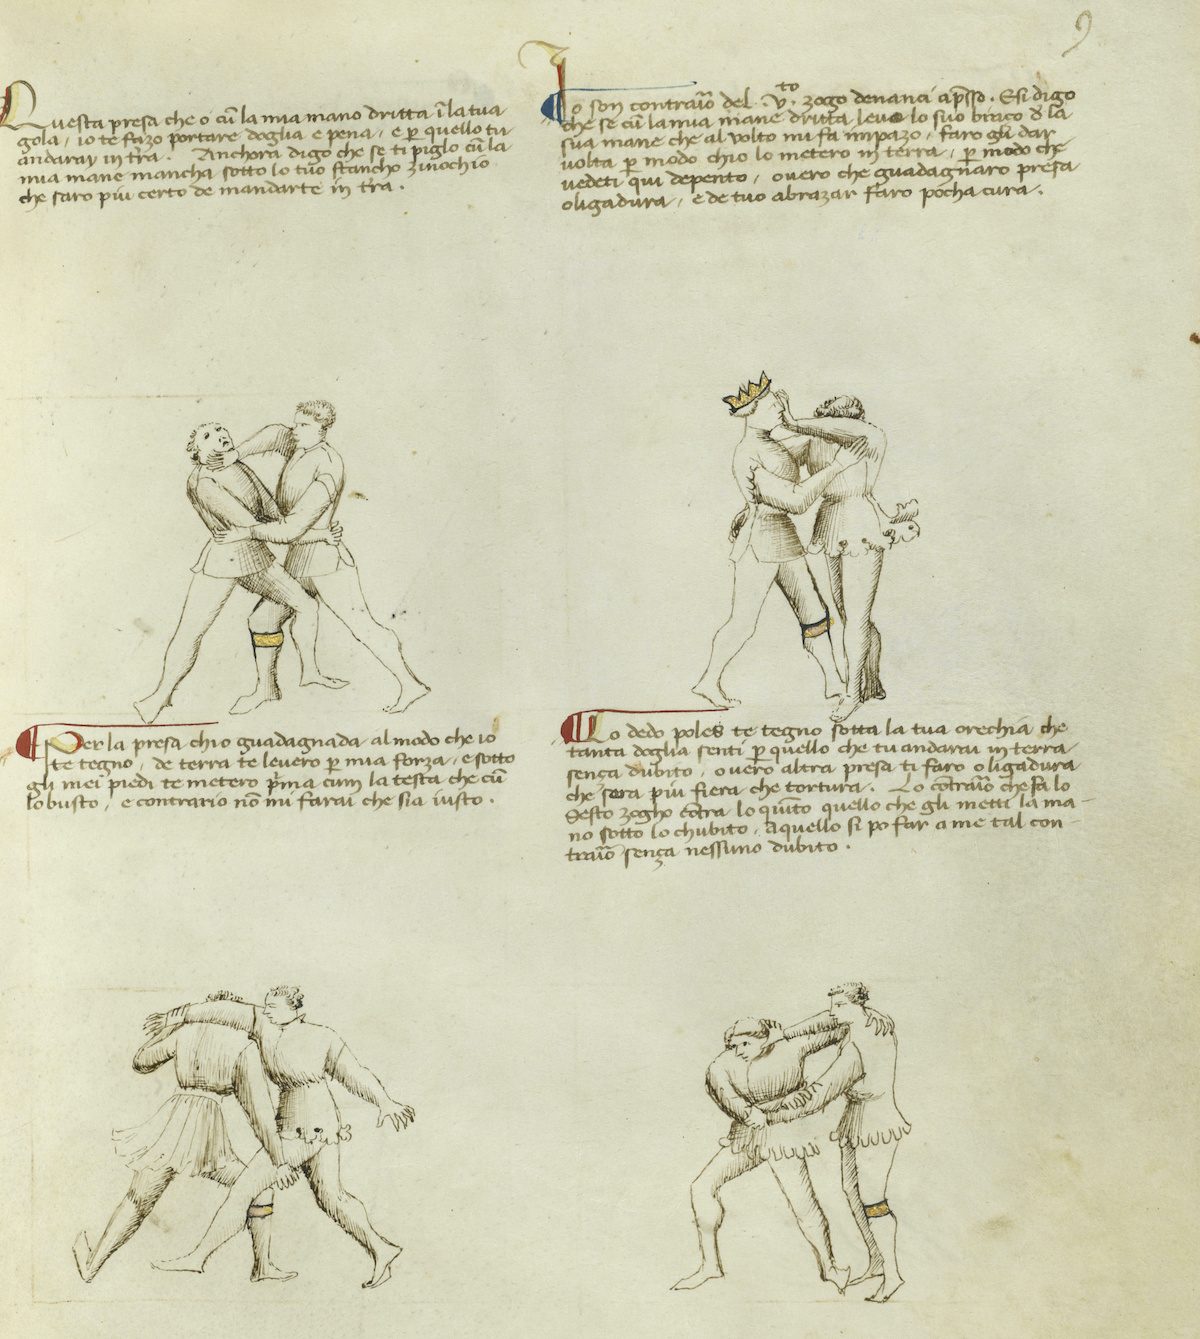 Questa presa che o cū la mia mano dritta ī la tua
gola, io te fazo portare doglia e pena, e per quello tu
andaray in tr̄a. Anchora digo che se ti piglo cū la
mia mane mancha sotto lo tuo stancho zinochio
che saro piu certo de mandarte in tr̄a.
9
Io son contrario del .v.to zogo denanci apresso. Esi digo
che se cū la mia mane dritta levo lo suo brazo de la
sua mane che al volto mi fa impazo, faro gli dar
volta per modo chio lo metero in terra, per modo che
vedeti qui depento, overo che guadagnaro presa
oligadura, e de tuo abrazar faro pocha cura.
Per la presa chio guadagnada, al modo che io
te tegno, de terra te levero per mia forza, e sotto
gli mei piedi te metero prima cum la testa che cū
lo busto, e contrario nō mi farai che sia iusto.
Lo dedo poles te tegno sotta la tua orechia che
tanta doglia senti per quello che tu andarai in terra
senza dubito, overo altra presa ti faro oligadura
che sera piu fiera che tortura. Lo contrario che fa lo
Sesto zogho contra lo quinto quello che gli metti la ma-
no sotto lo chubito, aquello si po far a me tal con-
trario senza nessuno dubito.